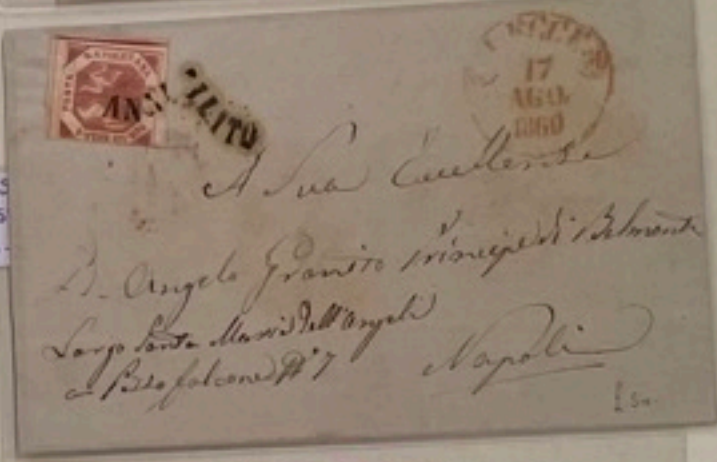 POSTA NAPOLETANA
ANNULLATO
17
AGO.
1860
A Sua Eccellenza
D. Angelo Granito Principe di Belmonte
Largo Santa Maria dell'Angeli
a Pizzofalcone N° 7
Napoli